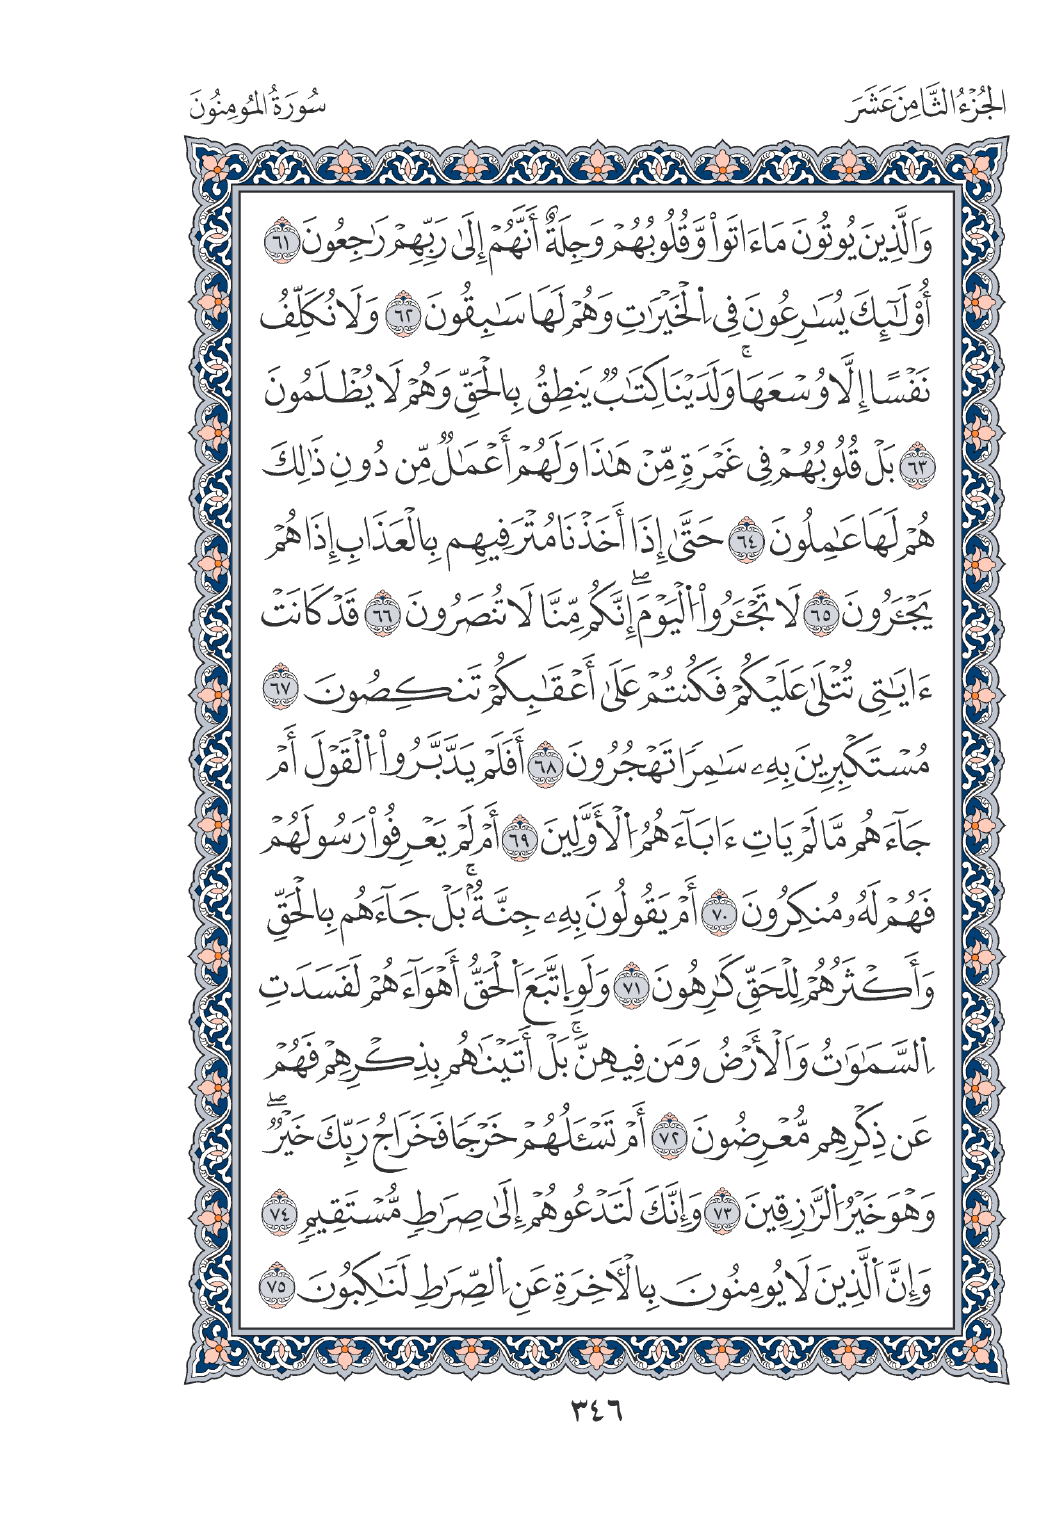 الجُزْءُ الثَّامِنَ عَشَرَ
سُورَةُ المُومِنُونَ
وَالَّذِينَ يُوتُونَ مَا ءَاتَواْ وَّقُلُوبُهُمْ وَجِلَةٌ أَنَّهُمْ إِلَىٰ رَبِّهِمْ رَٰجِعُونَ ٦١
أُوْلَٰٓئِكَ يُسَٰرِعُونَ فِي اِ۬لْخَيْرَٰتِ وَهُمْ لَهَا سَٰبِقُونَ ٦٢ وَلَا نُكَلِّفُ
نَفْسًا إِلَّا وُسْعَهَاۚ وَلَدَيْنَا كِتَٰبٌ يَنطِقُ بِالْحَقِّ وَهُمْ لَا يُظْلَمُونَ
٦٣ بَلْ قُلُوبُهُمْ فِي غَمْرَةٍ مِّنْ هَٰذَا وَلَهُمْ أَعْمَٰلٌ مِّن دُونِ ذَٰلِكَ
هُمْ لَهَا عَٰمِلُونَ ٦٤ حَتَّىٰ إِذَا أَخَذْنَا مُتْرَفِيهِم بِالْعَذَابِ إِذَا هُمْ
يَجْـَٔرُونَ ٦٥ لَا تَجْـَٔرُواْ اُ۬لْيَوْمَۖ إِنَّكُم مِّنَّا لَا تُنصَرُونَ ٦٦ قَدْ كَانَتْ
ءَايَٰتِي تُتْلَىٰ عَلَيْكُمْ فَكُنتُمْ عَلَىٰ أَعْقَٰبِكُمْ تَنكِصُونَ ٦٧
مُسْتَكْبِرِينَ بِهِۦ سَٰمِرًا تَهْجُرُونَ ٦٨ أَفَلَمْ يَدَّبَّرُواْ اُ۬لْقَوْلَ أَمْ
جَآءَهُم مَّا لَمْ يَاتِ ءَابَآءَهُمُ اُ۬لْأَوَّلِينَ ٦٩ أَمْ لَمْ يَعْرِفُواْ رَسُولَهُمْ
فَهُمْ لَهُۥ مُنكِرُونَ ٧٠ أَمْ يَقُولُونَ بِهِۦ جِنَّةٌۢۚ بَلْ جَآءَهُم بِالْحَقِّ
وَأَكْثَرُهُمْ لِلْحَقِّ كَٰرِهُونَ ٧١ وَلَوِ اِ۪تَّبَعَ اَ۬لْحَقُّ أَهْوَآءَهُمْ لَفَسَدَتِ
اِ۬لسَّمَٰوَٰتُ وَالْأَرْضُ وَمَن فِيهِنَّۚ بَلْ أَتَيْنَٰهُم بِذِكْرِهِمْ فَهُمْ
عَن ذِكْرِهِم مُّعْرِضُونَ ٧٢ أَمْ تَسْـَٔلُهُمْ خَرْجًا فَخَرَاجُ رَبِّكَ خَيْرٌۖ
وَهْوَ خَيْرُ اُ۬لرَّٰزِقِينَ ٧٣ وَإِنَّكَ لَتَدْعُوهُمْ إِلَىٰ صِرَٰطٍ مُّسْتَقِيمٍ ٧٤
وَإِنَّ اَ۬لَّذِينَ لَا يُومِنُونَ بِالْأٓخِرَةِ عَنِ اِ۬لصِّرَٰطِ لَنَٰكِبُونَ ٧٥
٣٤٦